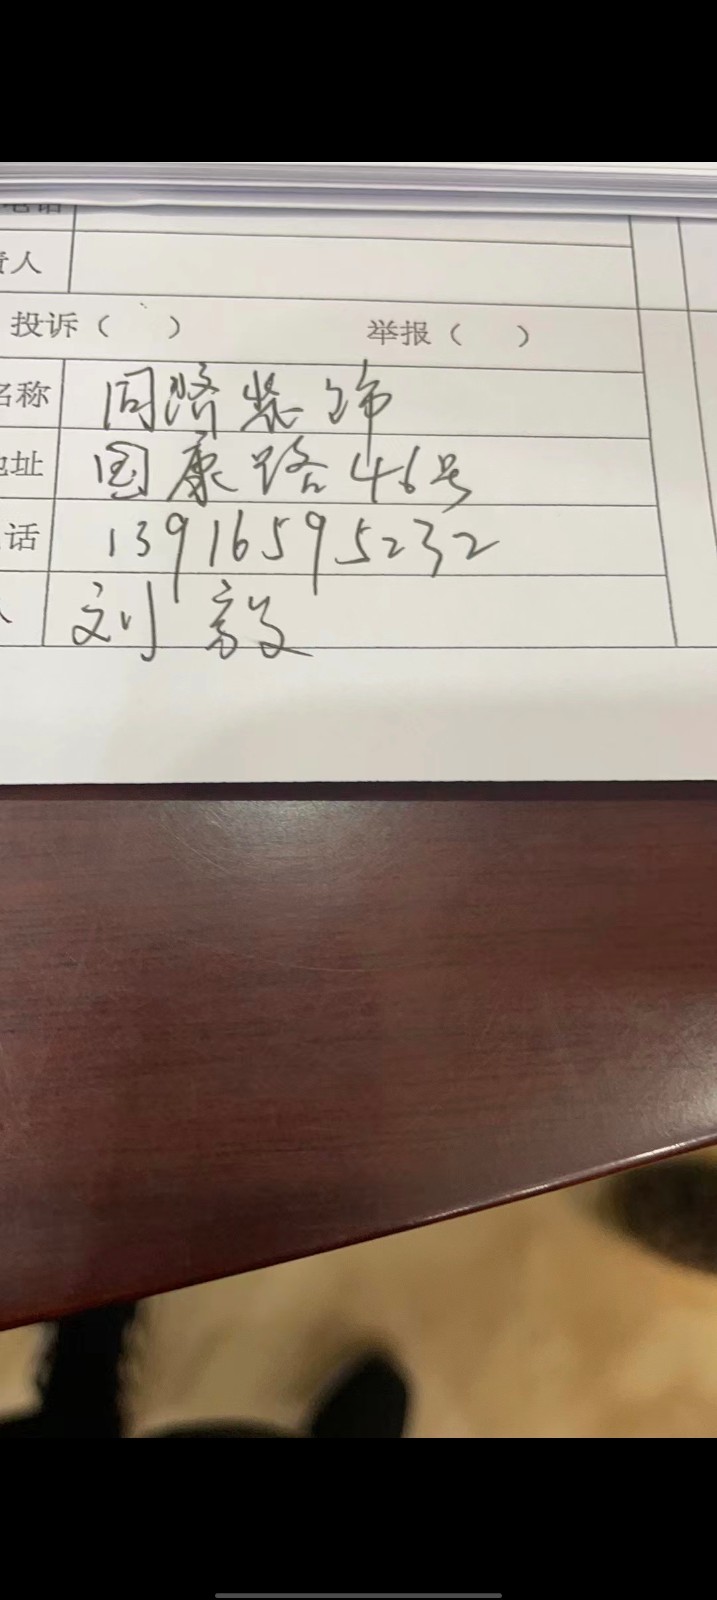 电话
责人
投诉（ ） 举报（ ）
名称 同济装饰
地址 国康路46号
话 13916595232
人 刘毅